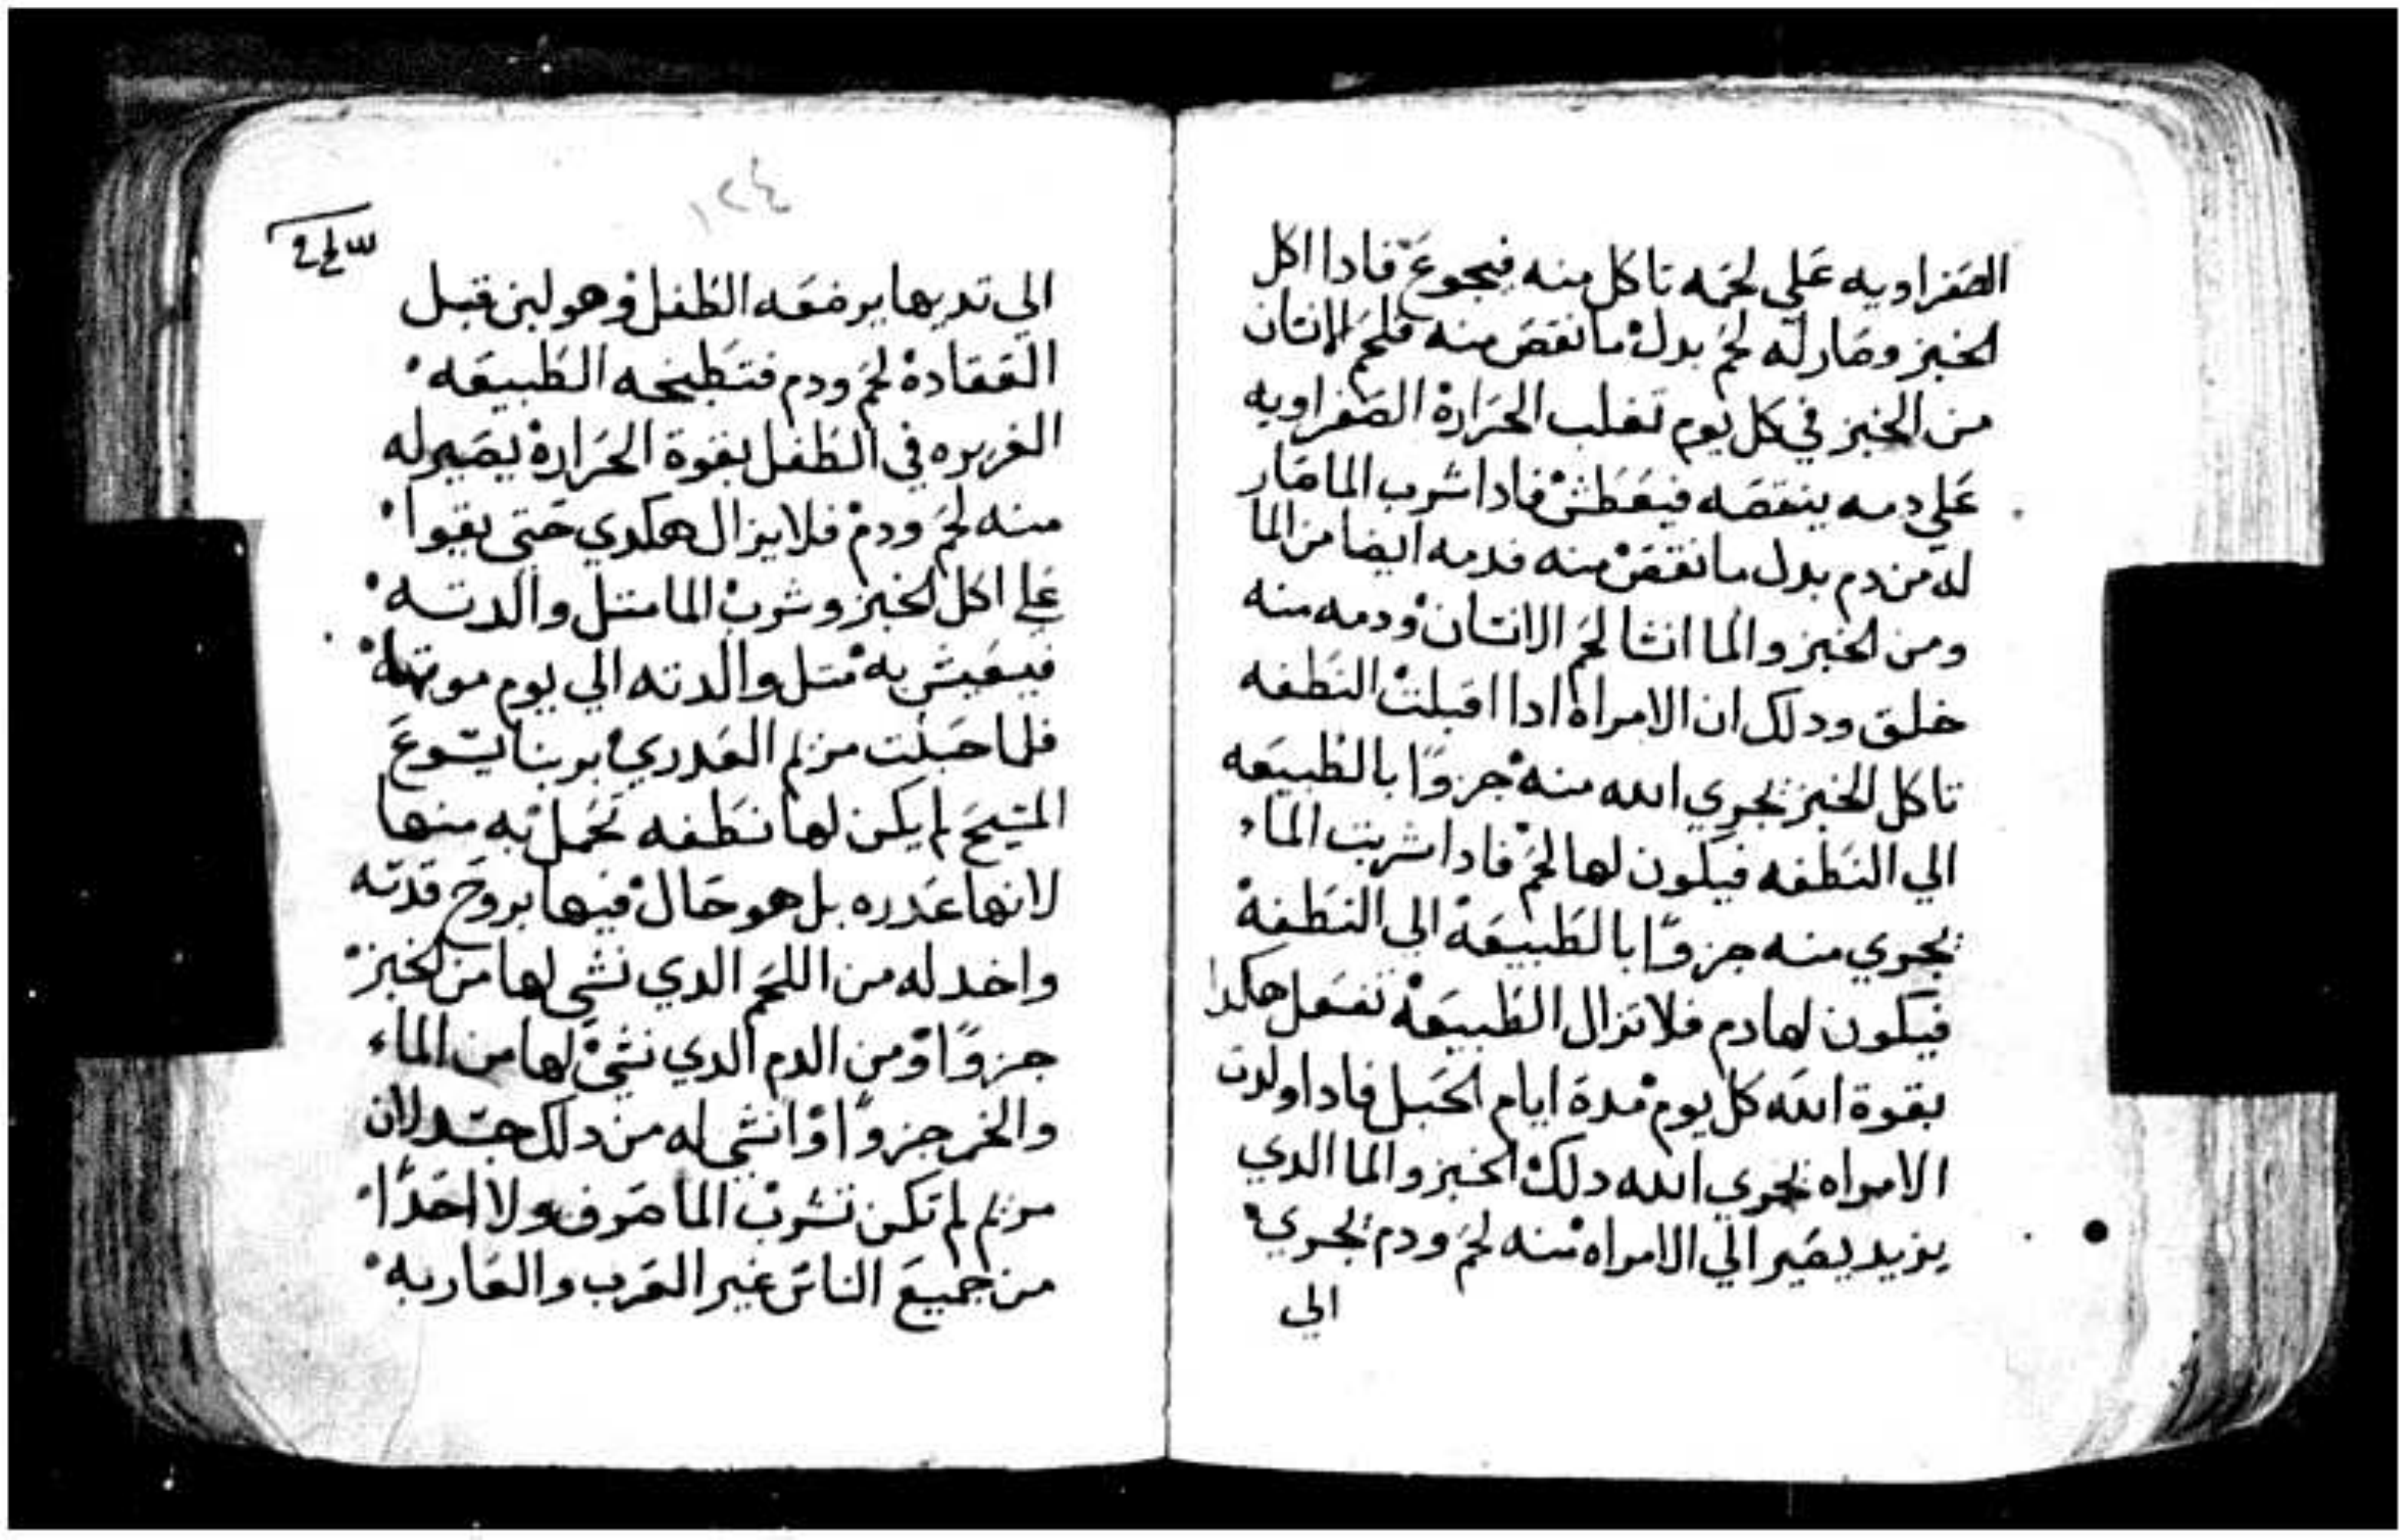 الصفراويه علي لحمه تاكل منه فيجوع فادا اكل
الخبز وصار له لحم بدل ما نقص منه فلحم الانسان
من الخبز في كل يوم تغلب الحرارة الصفراويه
علي دمه ينقصه فيعطش فادا شرب الما صار
له من دم بدل ما نقص منه فدمه ايضا من الما
ومن الخبز والما انشا لحم الانسان ودمه منه
خلق ودلك ان الامراة ادا اقبلت النطفه
تاكل الخبز يجري الله منه جزوًا بالطبيعه
الي النطفه فيكون لها لحم فادا شربت الماء
يجري منه جزوًا بالطبيعة الي النطفة
فيكون لها دم فلا تزال الطبيعة تفعل هكدا
بقوة الله كل يوم مدة ايام الحبل فادا ولدت
الامراه يجري الله دلك الخبز والما الدي
يزيد يصير الي الامراه منه لحم ودم يجري
الي
١٢٤
الي تديها يرضعه الطفل وهو لبن قبل
العقادة لحم ودم فتطبخه الطبيعه
الغريره في الطفل بقوة الحرارة يصير له
منه لحم ودم فلا يزال هكدي حتي يقوا
علي اكل الخبز وشرب الما متل والدته
فيعيش به متل والدته الي يوم موتها
فلما حبلت مريم العدري بربنا يسوع
المسيح لم يكن لها نطفه تحمل به منها
لانها عدره بل هو حال فيها بروح قدسه
واخد له من اللحم الدي نشي لها من الخبز
جزوًا ومن الدم الدي نشي لها من الماء
والخمر جزوًا وانشي له من دلك جسد لان
مريم لم تكن تشرب الما صرف ولا احدًا
من جميع الناس غير العرب والعاربه